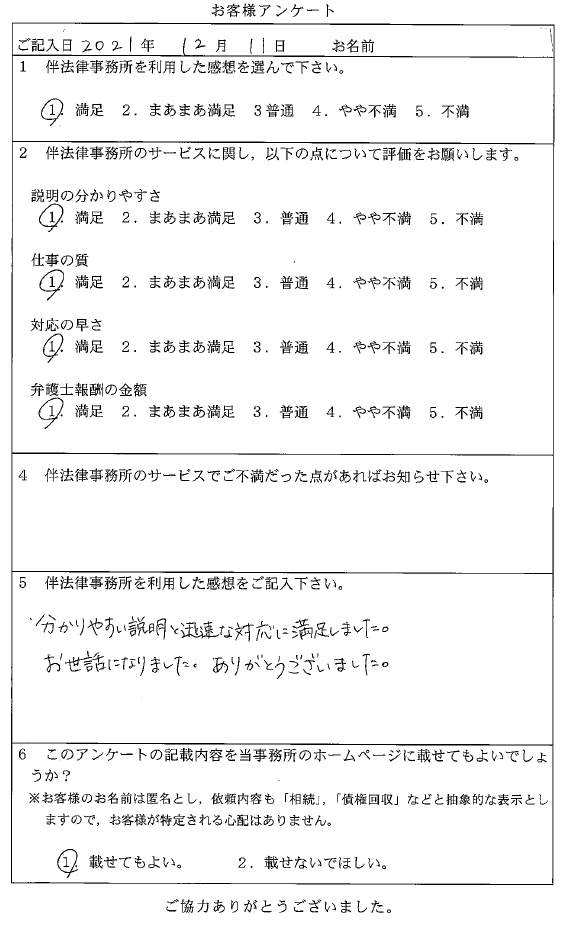 お客様アンケート
ご記入日 2021年 12月 11日 お名前
1 伴法律事務所を利用した感想を選んで下さい。
1. 満足 2. まあまあ満足 3 普通 4. やや不満 5. 不満
2 伴法律事務所のサービスに関し，以下の点について評価をお願いします。
説明の分かりやすさ
1. 満足 2. まあまあ満足 3. 普通 4. やや不満 5. 不満
仕事の質
1. 満足 2. まあまあ満足 3. 普通 4. やや不満 5. 不満
対応の早さ
1. 満足 2. まあまあ満足 3. 普通 4. やや不満 5. 不満
弁護士報酬の金額
1. 満足 2. まあまあ満足 3. 普通 4. やや不満 5. 不満
4 伴法律事務所のサービスでご不満だった点があればお知らせ下さい。
5 伴法律事務所を利用した感想をご記入下さい。
分かりやすい説明と迅速な対応に満足しました。
お世話になりました。ありがとうございました。
6 このアンケートの記載内容を当事務所のホームページに載せてもよいでしょ
うか？
※お客様のお名前は匿名とし，依頼内容も「相続」，「債権回収」などと抽象的な表示とし
ますので，お客様が特定される心配はありません。
1. 載せてもよい。 2. 載せないでほしい。
ご協力ありがとうございました。